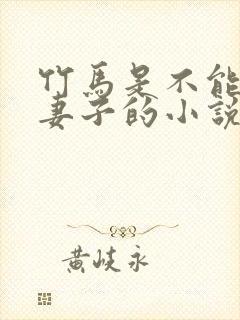 竹馬是不能
妻子的小說
黃岐永